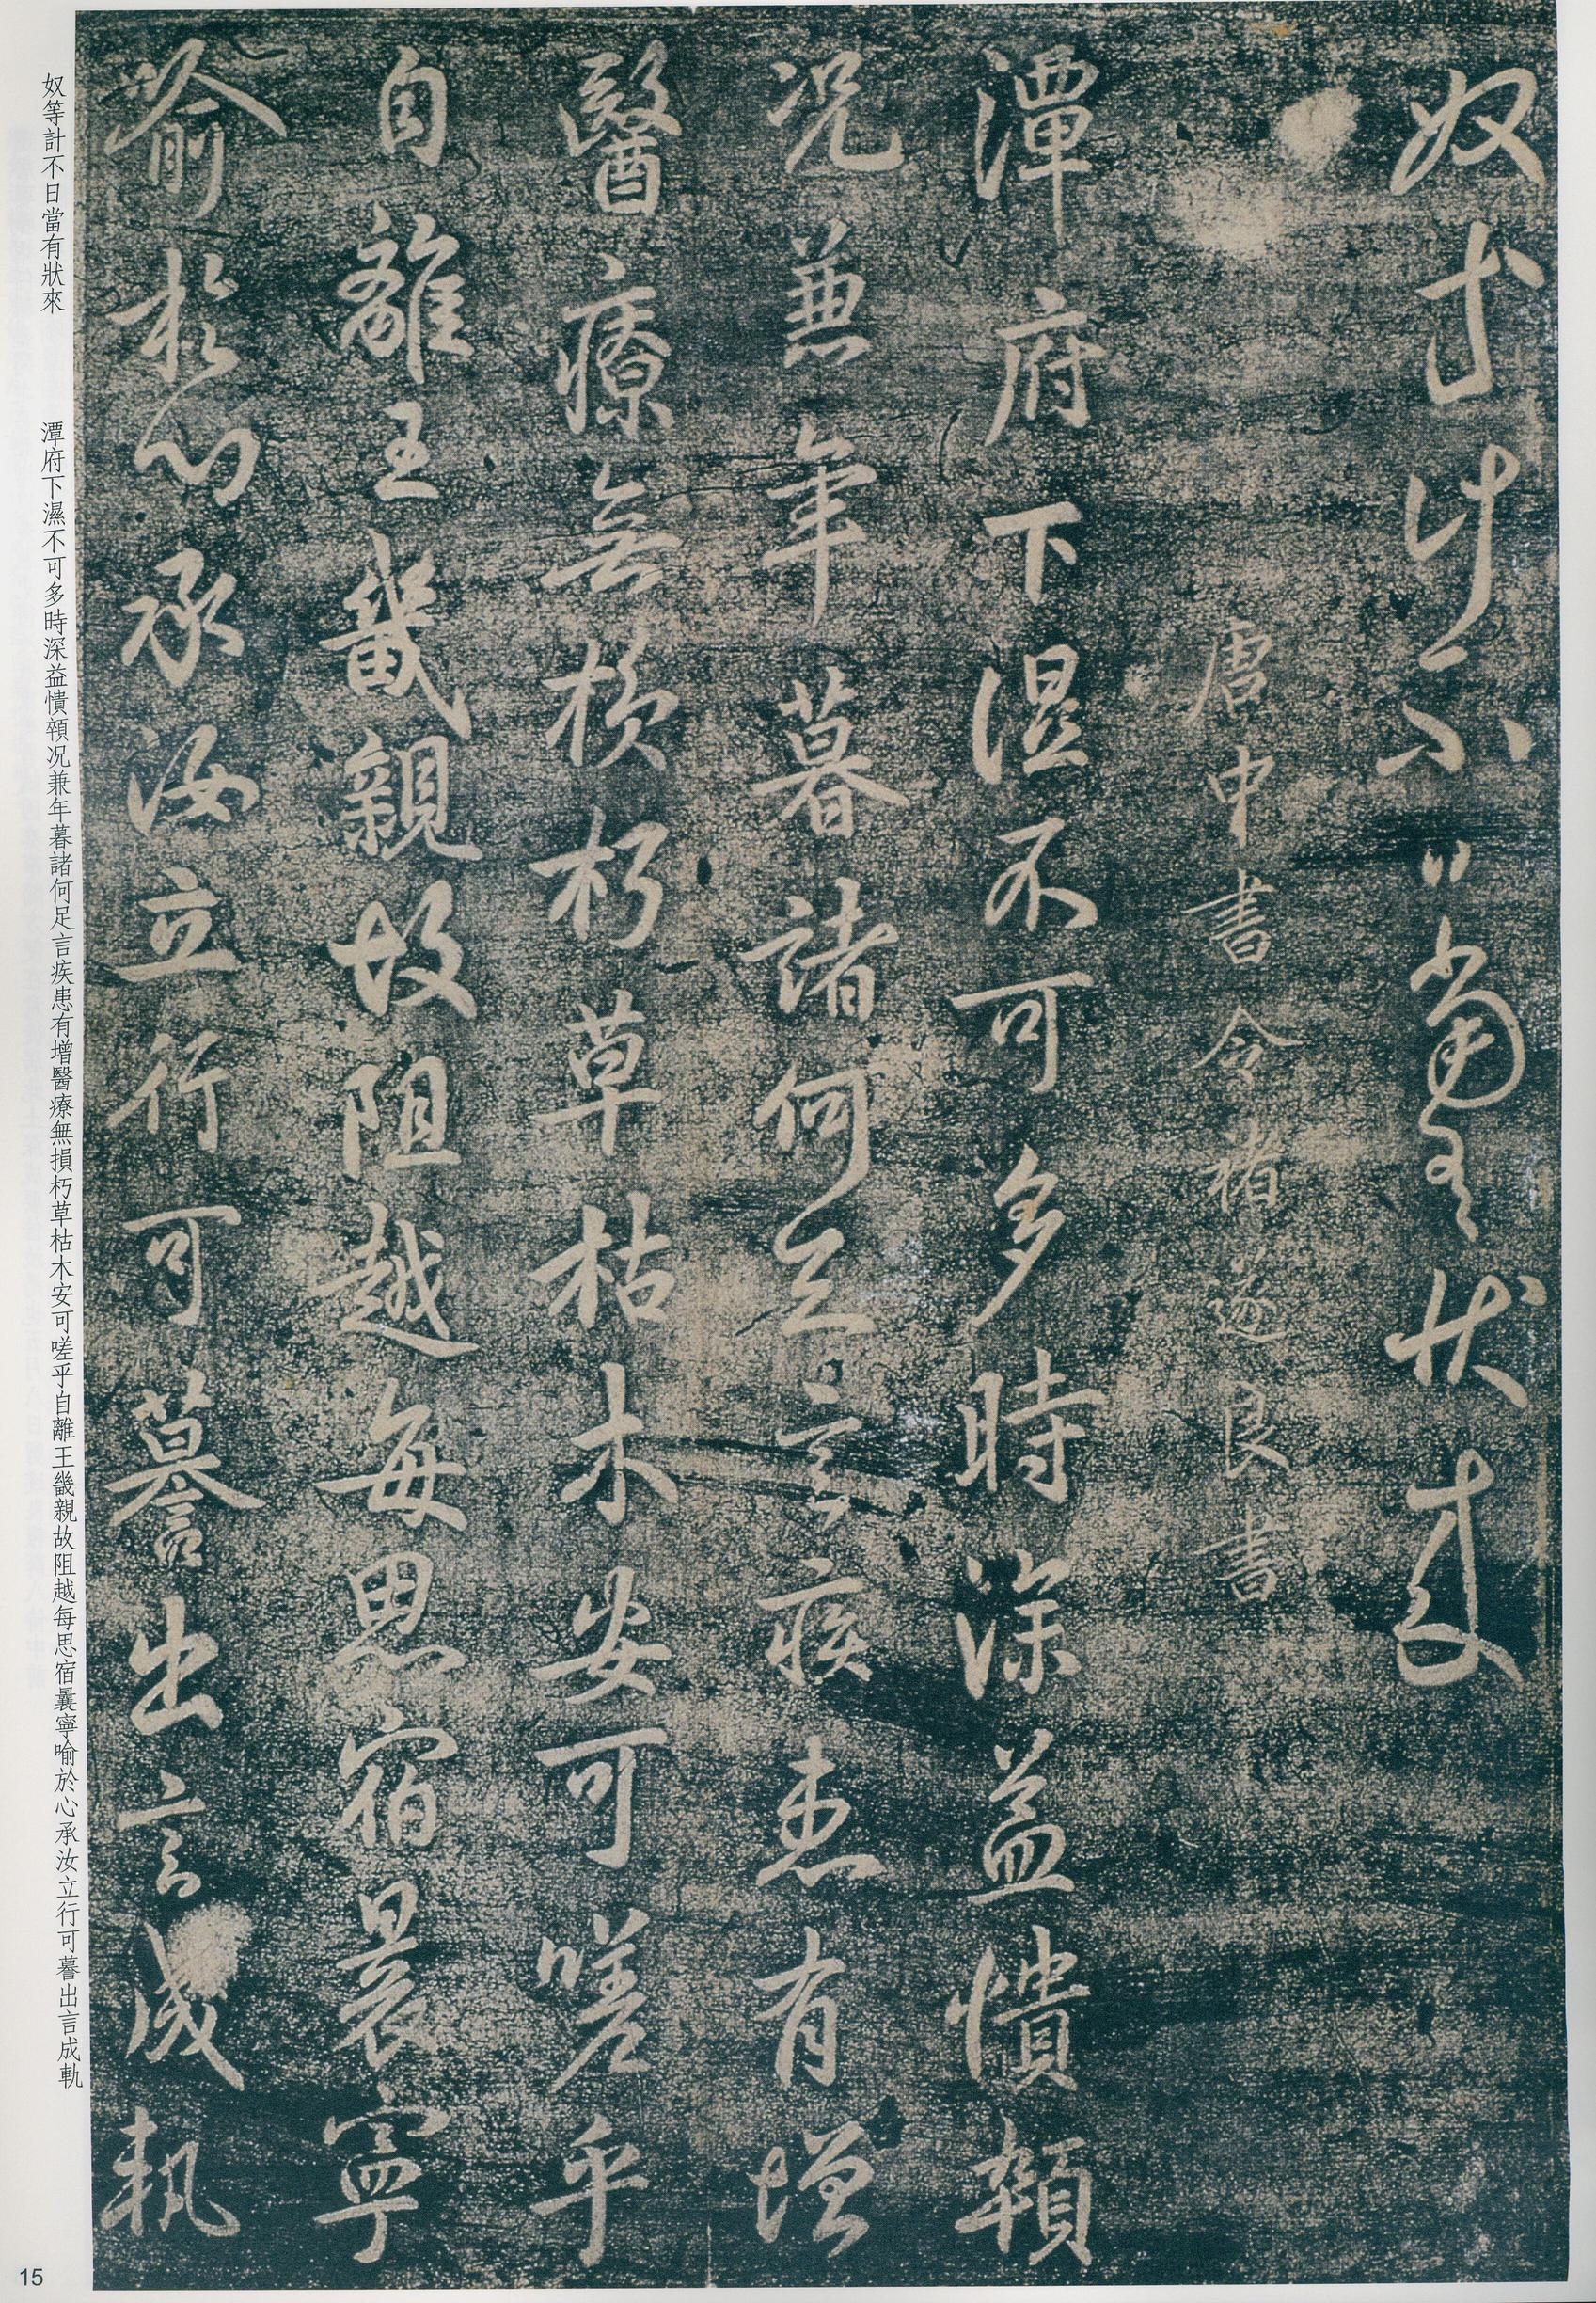 奴等計不日當有狀來
唐中書令褚遂良書
潭府下濕不可多時深益憒顇
況兼年暮諸何足言疾患有增
醫療無損朽草枯木安可嗟乎
自離王畿親故阻越每思宿曩寧
喻於心承汝立行可謩出言成軌
奴等計不日當有狀來
潭府下濕不可多時深益憒顇況兼年暮諸何足言疾患有增醫療無損朽草枯木安可嗟乎自離王畿親故阻越每思宿曩寧喻於心承汝立行可謩出言成軌
15